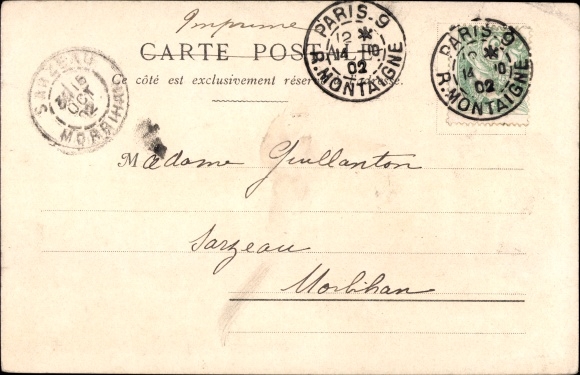 Imprimé
CARTE POSTALE
Ce côté est exclusivement réservé à l'adresse.
PARIS-9
12 *
14 10
02
R. MONTAIGNE
PARIS-9
*
14 10
02
R. MONTAIGNE
SARZEAU
15
OCT
02
MORBIHAN
Madame Guillanton
Sarzeau
Morbihan